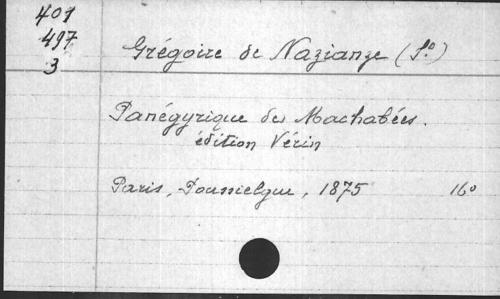 401
497
3
Grégoire de Nazianze (St)
Panégyrique des Machabées.
édition Vérin
Paris, Poussielgue, 1875 16°